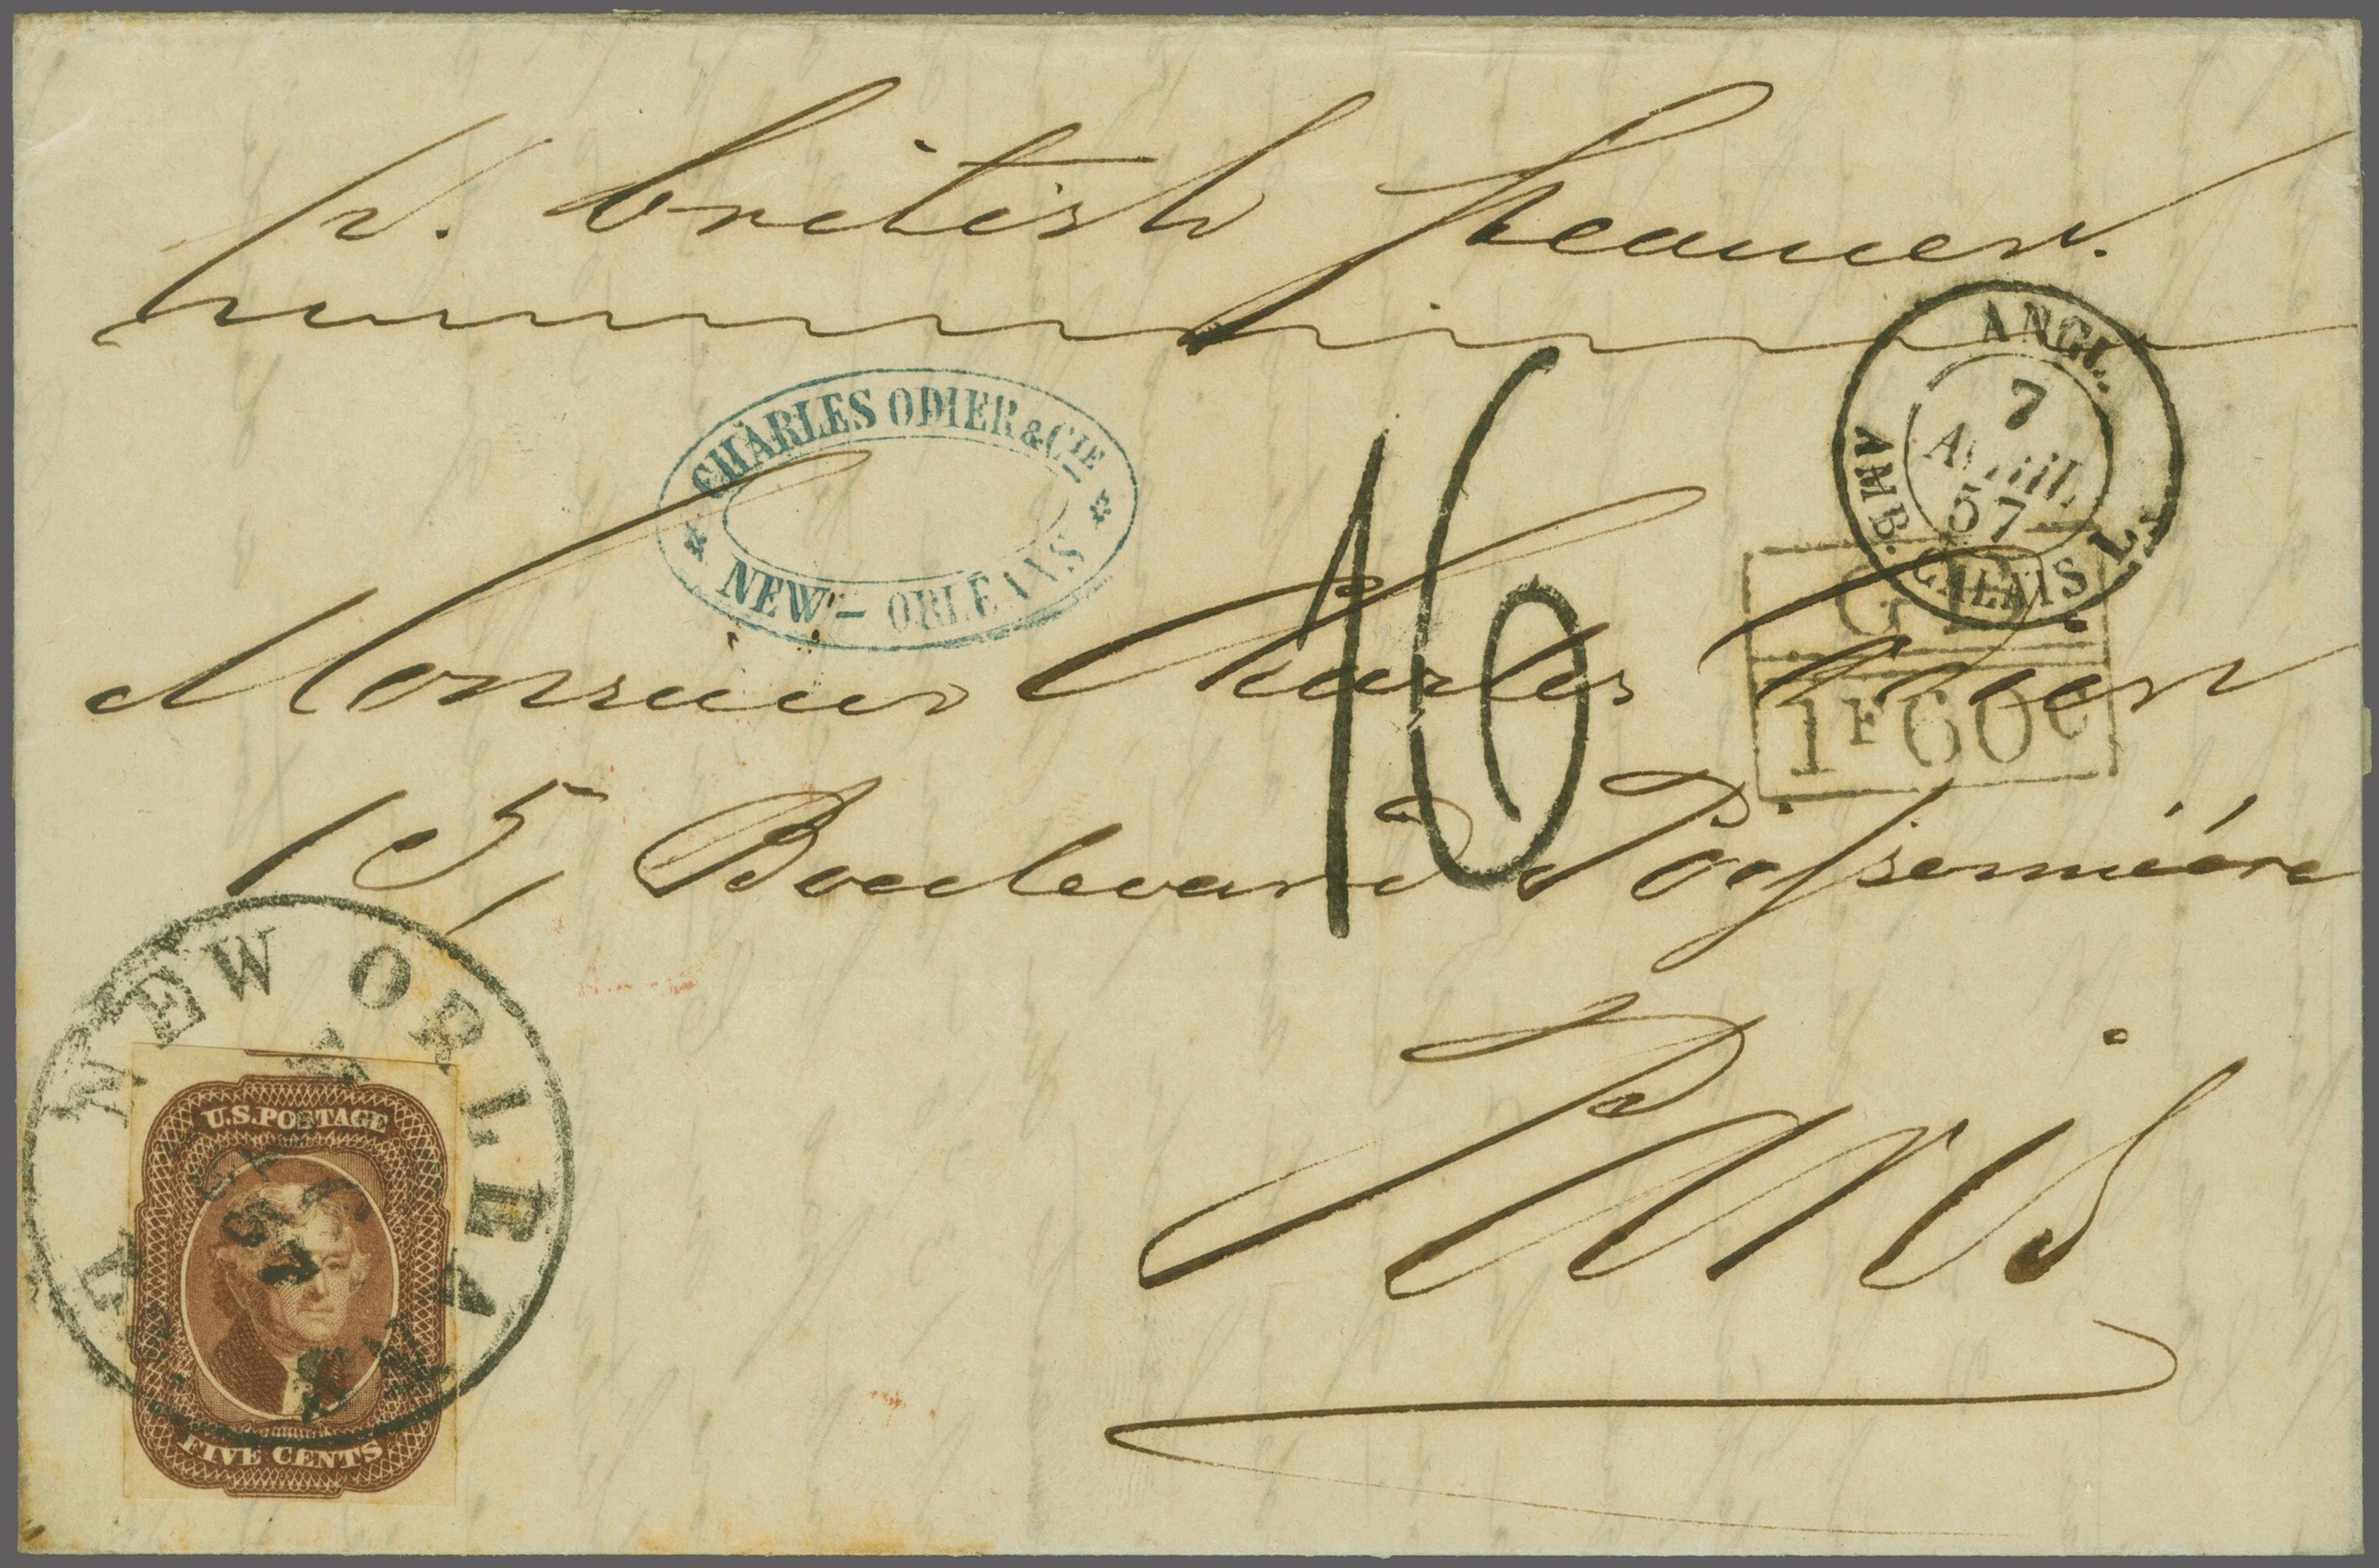 p. british steamer.
CHARLES ODIER & CIE
NEW-ORLEANS
ANGL.
7
AVRIL
57
AMB. CALAIS
16
GB
1F60C
Monsieur Charles
15, Boulevard Poissonnière
Paris
NEW ORLEANS
U.S. POSTAGE
FIVE CENTS